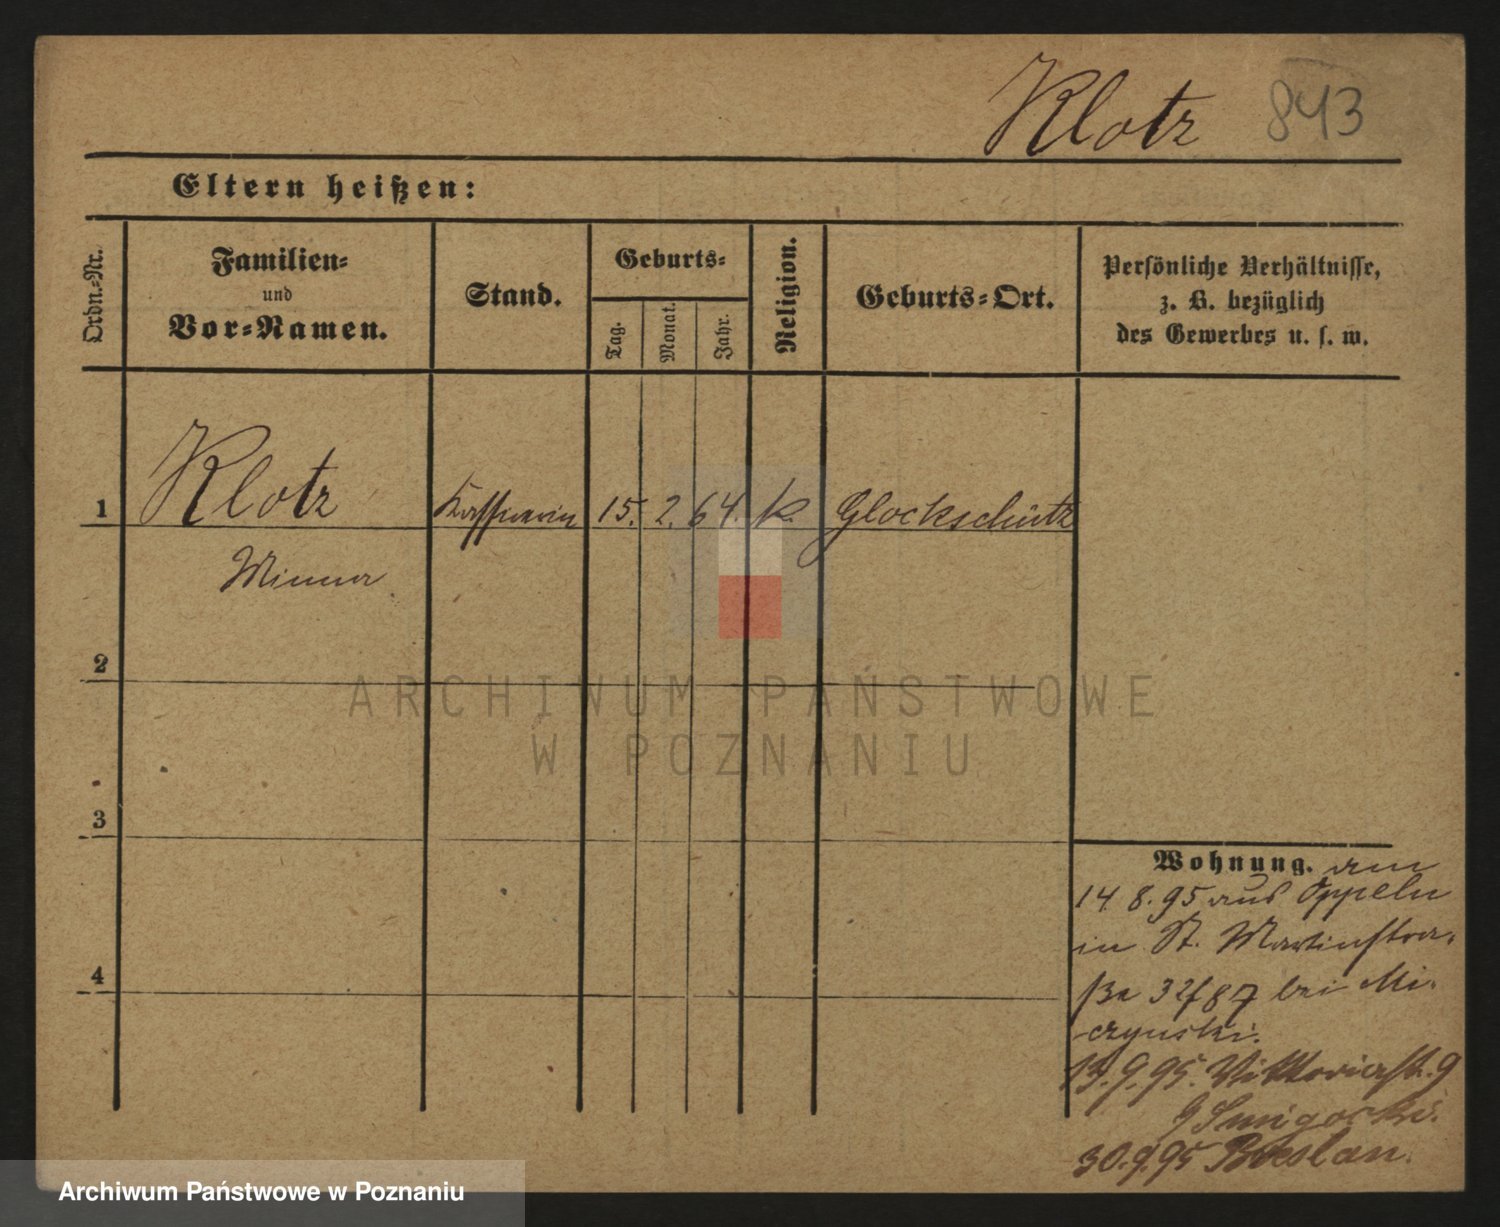 Klotz 843
Eltern heißen:
Ordn.-Nr.
Familien-
und
Vor-Namen.
Stand.
Geburts-
Tag.
Monat.
Jahr.
Religion.
Geburts-Ort.
Persönliche Verhältnisse,
z. B. bezüglich
des Gewerbes u. s. w.
1 Klotz Kassirerin 15. 2. 64. k. Glockschütz
Minna
2
3
4
Wohnung. am
14. 8. 95 aus Oppeln
in St. Martinstra-
ße 32 bei Mi-
czynski.
13. 9. 95. Viktoriastr. 9
30. 9. 95 Breslau.
ARCHIWUM PAŃSTWOWE
W POZNANIU
Archiwum Państwowe w Poznaniu